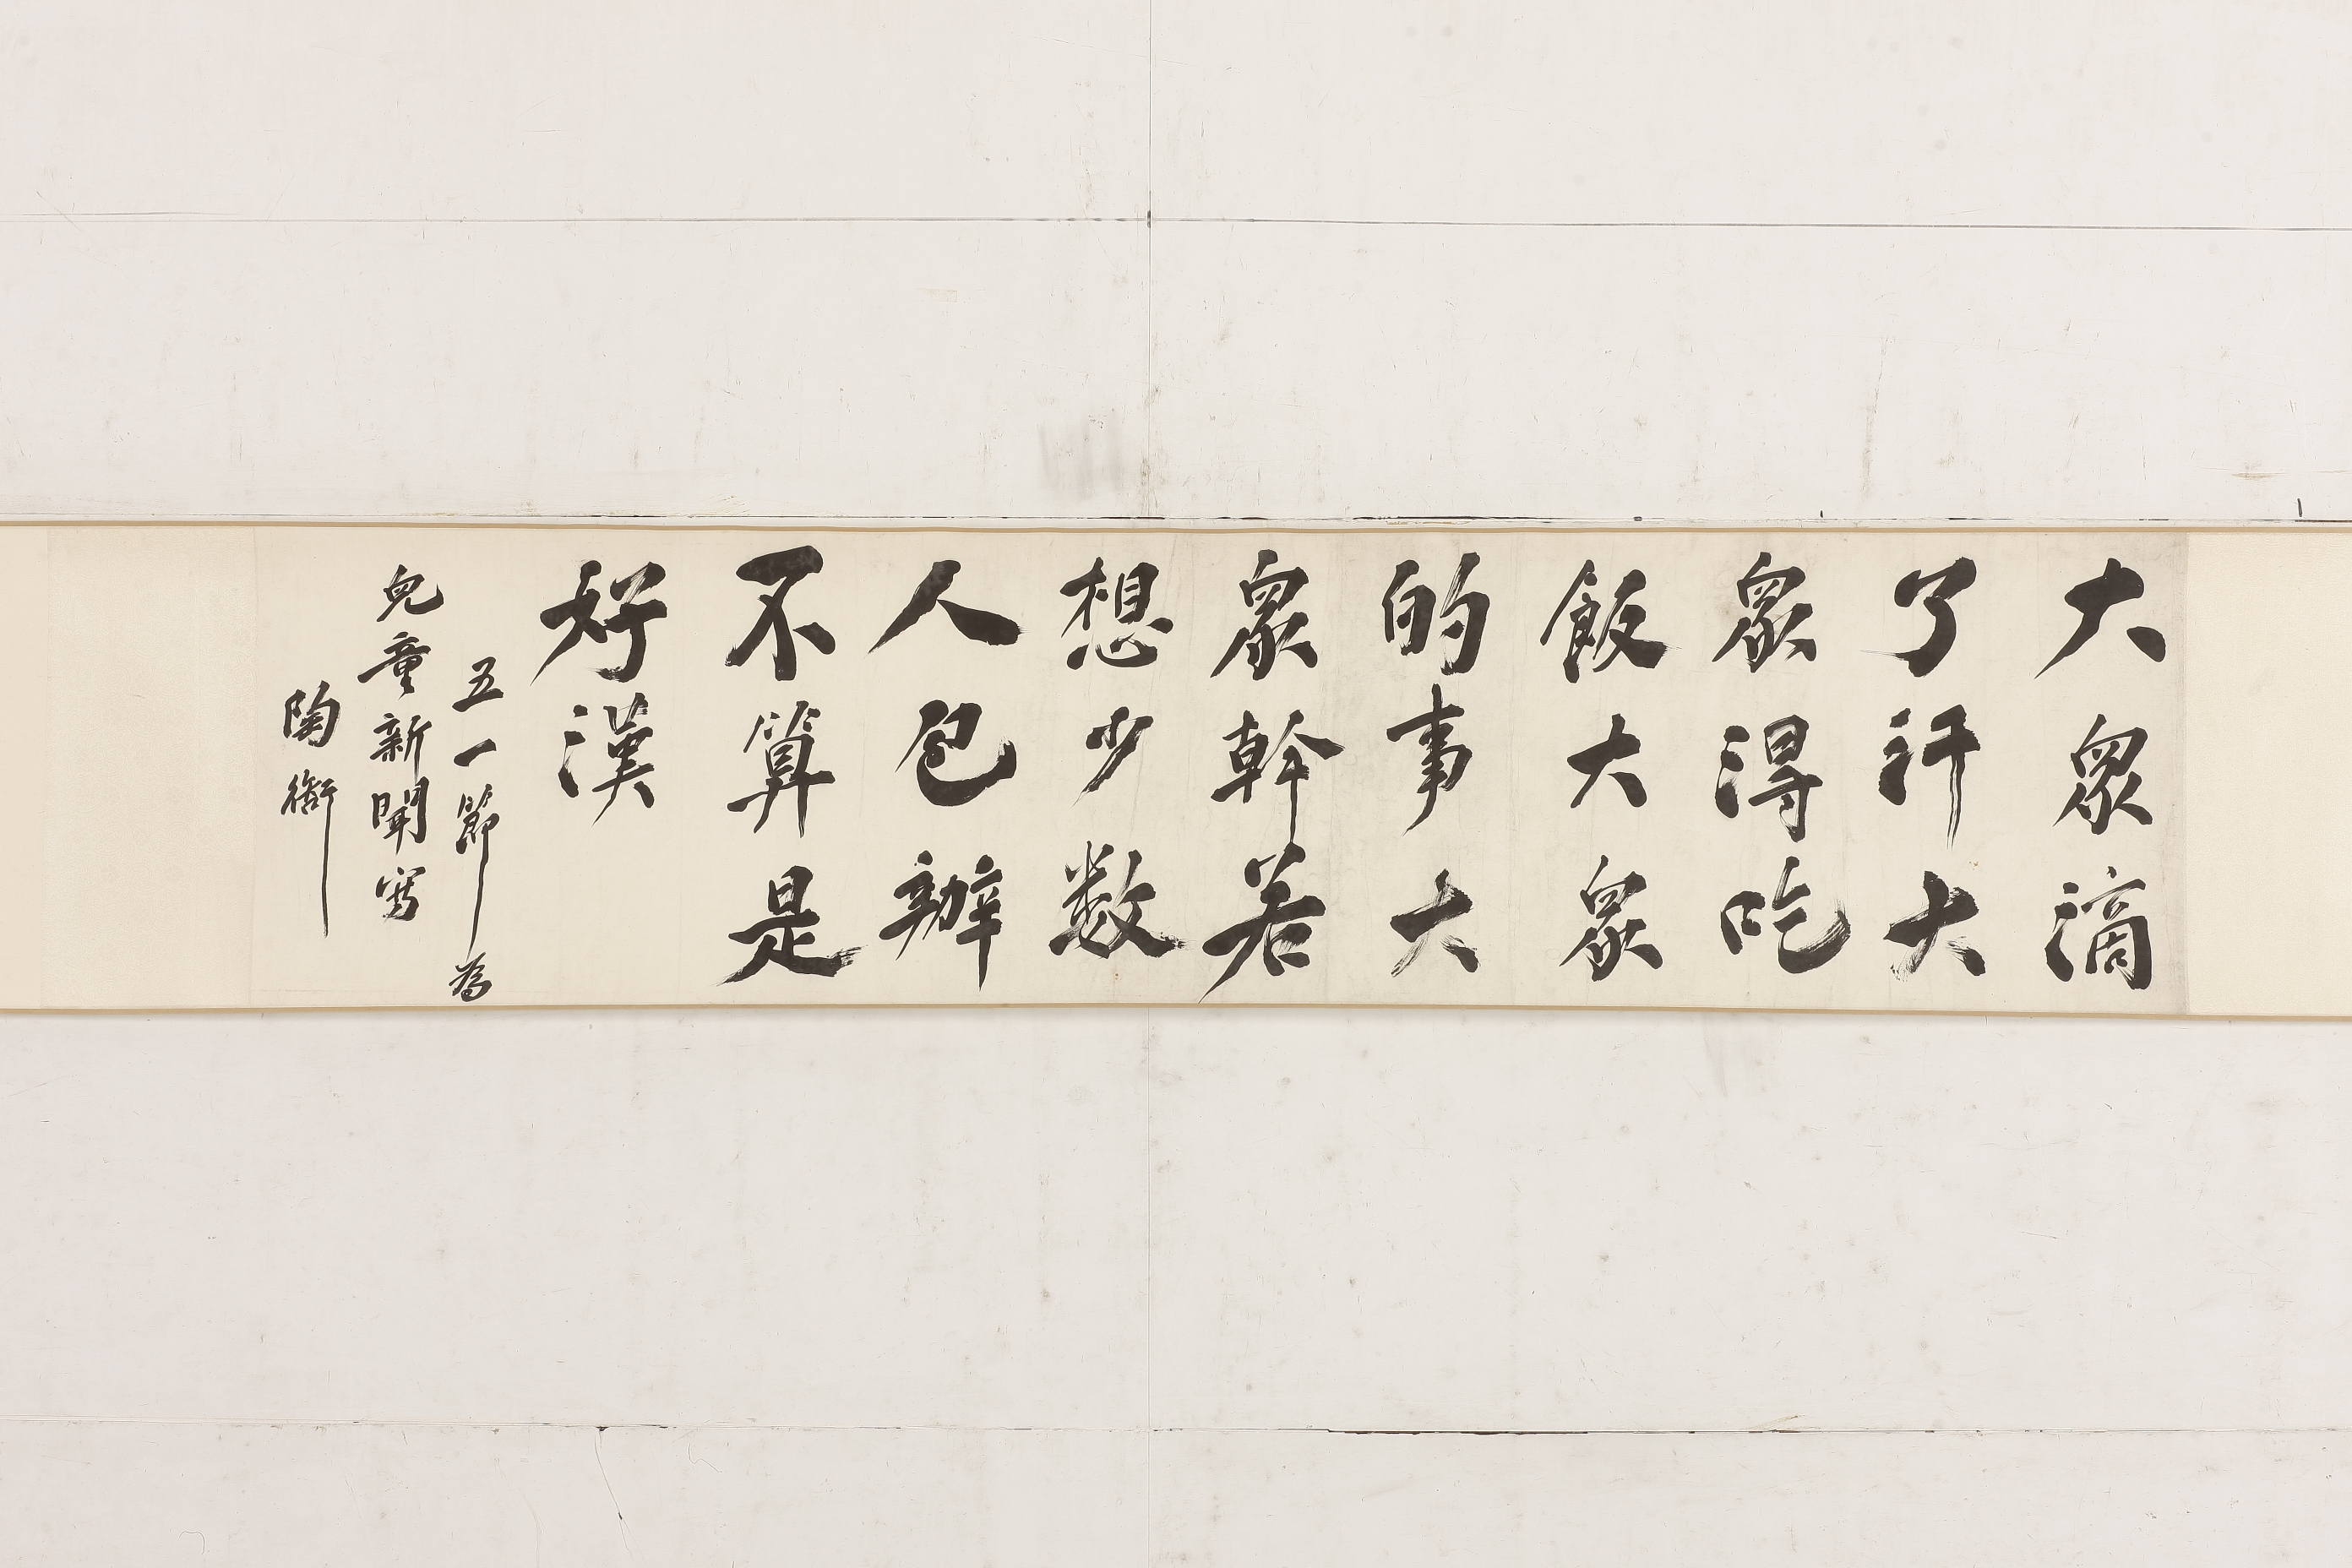 大眾滴
了汗大
眾得吃
飯大眾
的事大
眾幹若
想少数
人包辦
不算是
好漢
五一節為
兒童新聞寫
陶衘